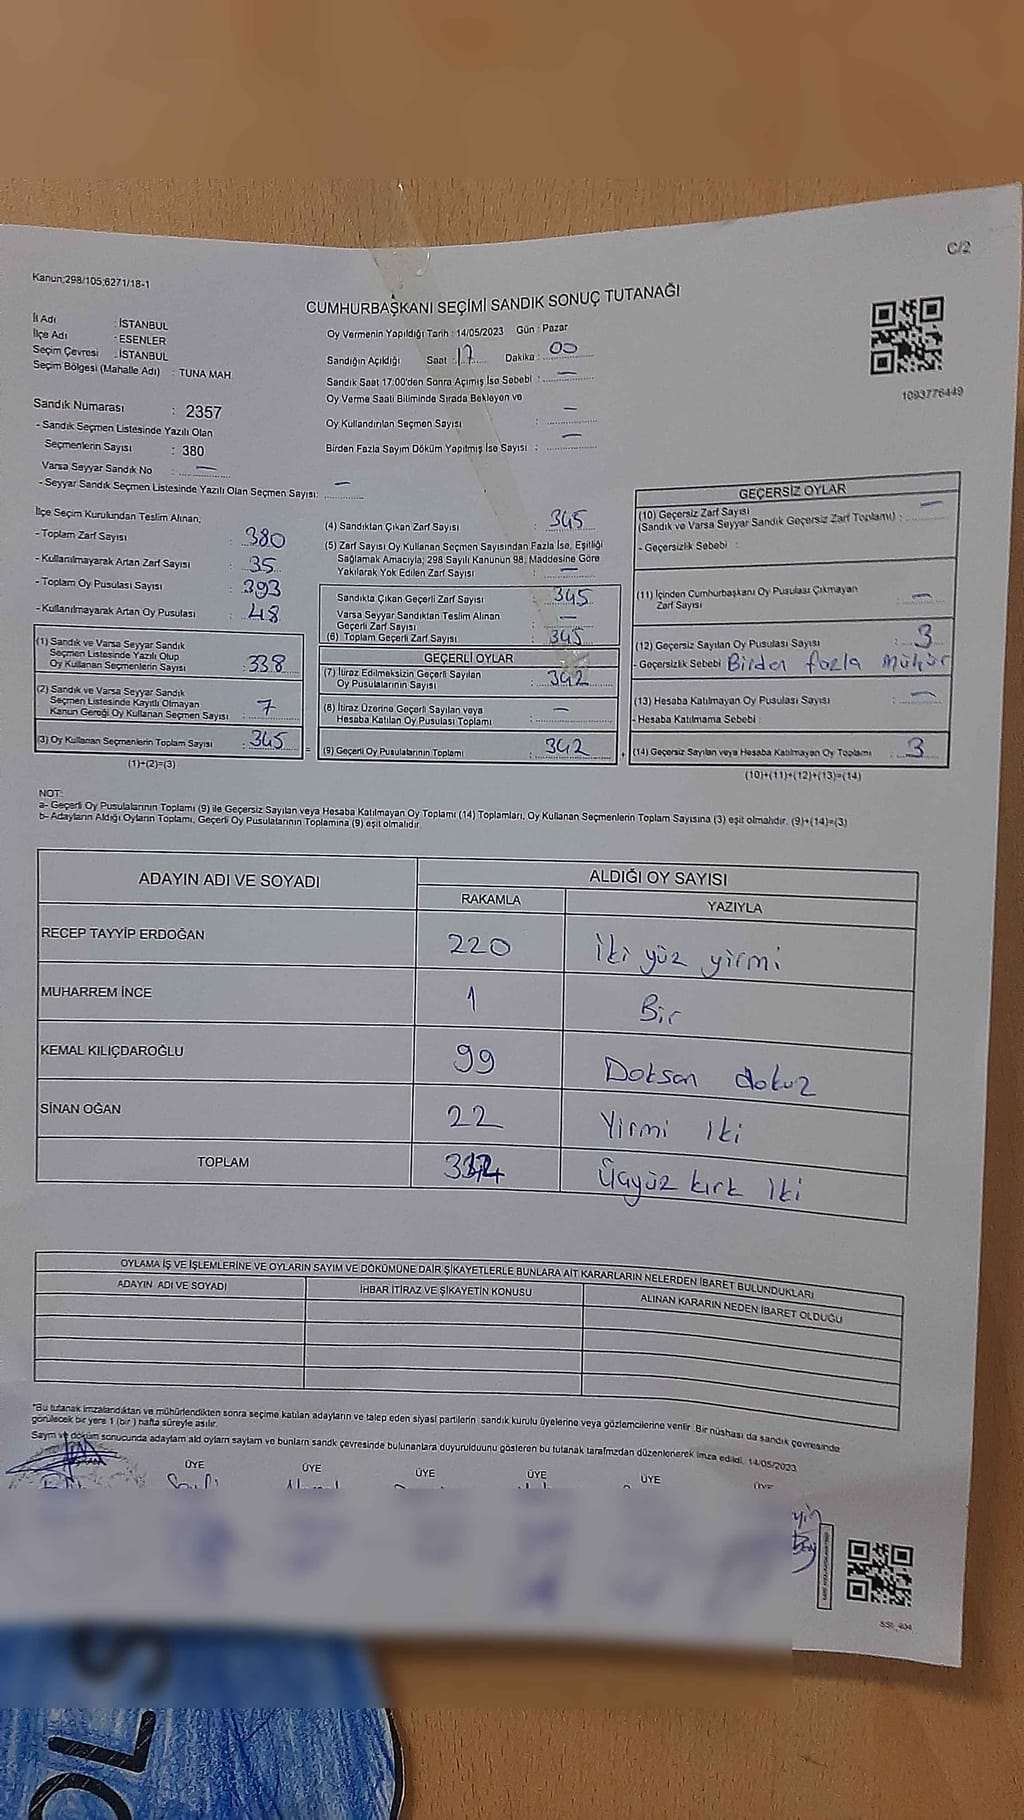 C/2
Kanun;298/105;6271/18-1
CUMHURBAŞKANI SEÇİMİ SANDIK SONUÇ TUTANAĞI
İl Adı : İSTANBUL
İlçe Adı : ESENLER
Seçim Çevresi : İSTANBUL
Seçim Bölgesi (Mahalle Adı) : TUNA MAH.
Oy Vermenin Yapıldığı Tarih : 14/05/2023 Gün : Pazar
Sandığın Açıldığı Saat : 17 Dakika : 00
Sandık Saat 17:00'den Sonra Açımış İse Sebebi : —
Oy Verme Saati Bitiminde Sırada Bekleyen ve
Oy Kullandırılan Seçmen Sayısı : —
Birden Fazla Sayım Döküm Yapılmış İse Sayısı : —
1093776449
Sandık Numarası : 2357
- Sandık Seçmen Listesinde Yazılı Olan
Seçmenlerin Sayısı : 380
Varsa Seyyar Sandık No : —
- Seyyar Sandık Seçmen Listesinde Yazılı Olan Seçmen Sayısı: —
İlçe Seçim Kurulundan Teslim Alınan;
- Toplam Zarf Sayısı : 380
- Kullanılmayarak Artan Zarf Sayısı : 35
- Toplam Oy Pusulası Sayısı : 393
- Kullanılmayarak Artan Oy Pusulası : 48
(1) Sandık ve Varsa Seyyar Sandık
Seçmen Listesinde Yazılı Olup
Oy Kullanan Seçmenlerin Sayısı : 338
(2) Sandık ve Varsa Seyyar Sandık
Seçmen Listesinde Kayıtlı Olmayan
Kanun Gereği Oy Kullanan Seçmen Sayısı : 7
(3) Oy Kullanan Seçmenlerin Toplam Sayısı : 345
(1)+(2)=(3)
(4) Sandıktan Çıkan Zarf Sayısı : 345
(5) Zarf Sayısı Oy Kullanan Seçmen Sayısından Fazla İse, Eşitliği
Sağlamak Amacıyla; 298 Sayılı Kanunun 98. Maddesine Göre
Yakılarak Yok Edilen Zarf Sayısı : —
Sandıkta Çıkan Geçerli Zarf Sayısı : 345
Varsa Seyyar Sandıktan Teslim Alınan
Geçerli Zarf Sayısı : —
(6) Toplam Geçerli Zarf Sayısı : 345
GEÇERLİ OYLAR
(7) İtiraz Edilmeksizin Geçerli Sayılan
Oy Pusulalarının Sayısı : 342
(8) İtiraz Üzerine Geçerli Sayılan veya
Hesaba Katılan Oy Pusulası Toplamı : —
= (9) Geçerli Oy Pusulalarının Toplamı : 342
GEÇERSİZ OYLAR
(10) Geçersiz Zarf Sayısı
(Sandık ve Varsa Seyyar Sandık Geçersiz Zarf Toplamı) : —
- Geçersizlik Sebebi :
(11) İçinden Cumhurbaşkanı Oy Pusulası Çıkmayan
Zarf Sayısı : —
(12) Geçersiz Sayılan Oy Pusulası Sayısı : 3
- Geçersizlik Sebebi Birden fazla mühür
(13) Hesaba Katılmayan Oy Pusulası Sayısı : —
- Hesaba Katılmama Sebebi :
+ (14) Geçersiz Sayılan veya Hesaba Katılmayan Oy Toplamı : 3
(10)+(11)+(12)+(13)=(14)
NOT:
a- Geçerli Oy Pusulalarının Toplamı (9) ile Geçersiz Sayılan veya Hesaba Katılmayan Oy Toplamı (14) Toplamları, Oy Kullanan Seçmenlerin Toplam Sayısına (3) eşit olmalıdır. (9)+(14)=(3)
b- Adayların Aldığı Oyların Toplamı, Geçerli Oy Pusulalarının Toplamına (9) eşit olmalıdır.
ADAYIN ADI VE SOYADI
ALDIĞI OY SAYISI
RAKAMLA YAZIYLA
RECEP TAYYİP ERDOĞAN 220 İki yüz yirmi
MUHARREM İNCE 1 Bir
KEMAL KILIÇDAROĞLU 99 Doksan dokuz
SİNAN OĞAN 22 Yirmi İki
TOPLAM Üçyüz kırk İki
OYLAMA İŞ VE İŞLEMLERİNE VE OYLARIN SAYIM VE DÖKÜMÜNE DAİR ŞİKAYETLERLE BUNLARA AİT KARARLARIN NELERDEN İBARET BULUNDUKLARI
ADAYIN ADI VE SOYADI İHBAR İTİRAZ VE ŞİKAYETİN KONUSU ALINAN KARARIN NEDEN İBARET OLDUĞU
*Bu tutanak imzalandıktan ve mühürlendikten sonra seçime katılan adayların ve talep eden siyasi partilerin sandık kurulu üyelerine veya gözlemcilerine verilir. Bir nüshası da sandık çevresinde
görülecek bir yere 1 (bir) hafta süreyle asılır.
Sayım ve döküm sonucunda adaylam ald oylarn saylam ve bunlarn sandk çevresinde bulunanlara duyurulduunu gösteren bu tutanak tarafmzdan düzenlenerek imza edildi. 14/05/2023
ÜYE ÜYE ÜYE ÜYE ÜYE ÜYE